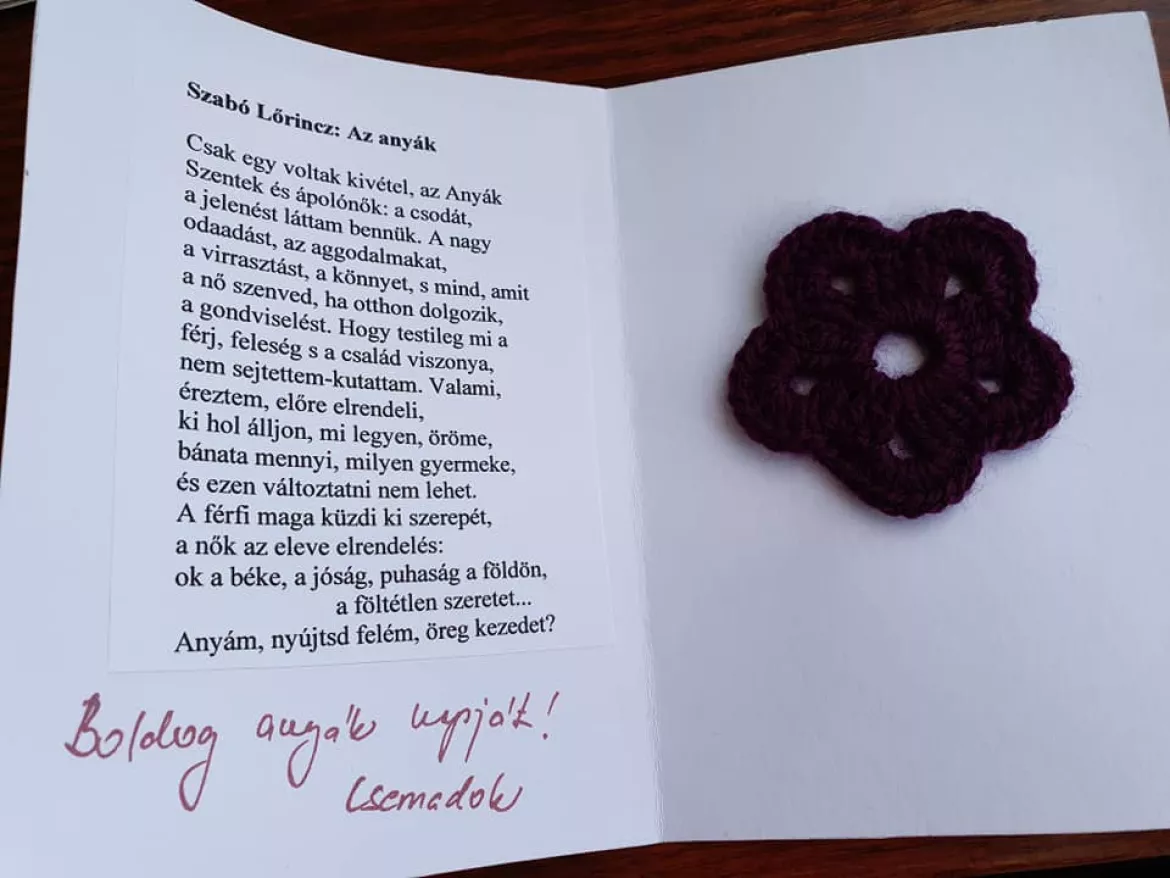 Szabó Lőrincz: Az anyák
Csak egy voltak kivétel, az Anyák
Szentek és ápolónők: a csodát,
a jelenést láttam bennük. A nagy
odaadást, az aggodalmakat,
a virrasztást, a könnyet, s mind, amit
a nő szenved, ha otthon dolgozik,
a gondviselést. Hogy testileg mi a
férj, feleség s a család viszonya,
nem sejtettem-kutattam. Valami,
éreztem, előre elrendeli,
ki hol álljon, mi legyen, öröme,
bánata mennyi, milyen gyermeke,
és ezen változtatni nem lehet.
A férfi maga küzdi ki szerepét,
a nők az eleve elrendelés:
ok a béke, a jóság, puhaság a földön,
a föltétlen szeretet...
Anyám, nyújtsd felém, öreg kezedet?
Boldog anyák napját!
Csemadok